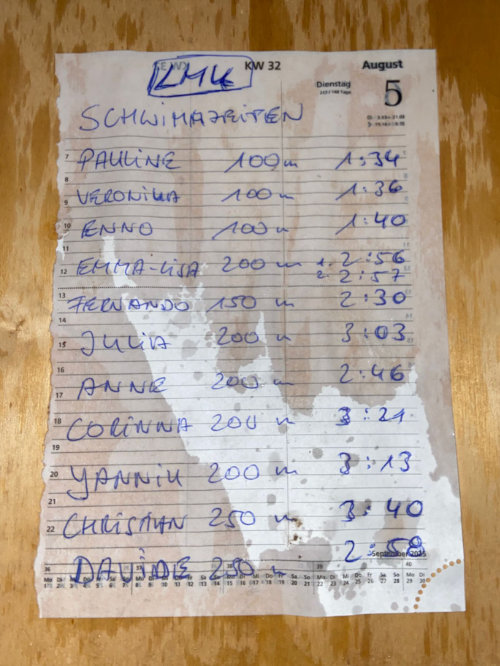 KW 32 August
LMK
Dienstag 5
SCHWIMMZEITEN
7 PAULINE 100 m 1:34
8 VERONIKA 100 m 1:36
9
10 ENNO 100 m 1:40
11
12 EMMA-LISA 200 m 1. 2:56
2. 2:57
13 FERNANDO 150 m 2:30
14
15 JULIA 200 m 3:03
16
17 ANNE 200 m 2:46
18 CORINNA 200 m 3:21
19
20 YANNIK 200 m 3:13
21
22 CHRISTIAN 250 m 3:40
September 2025
DAVIDE 250 m 2:59